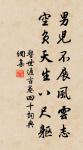 男兒不展風雲志
空負天生八尺軀
警世通言卷四十詞典
網集